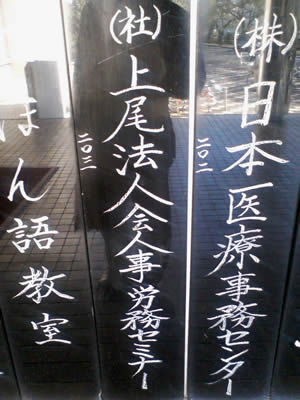 (株)日本医療事務センター
二〇二
(社)上尾法人会人事・労務セミナー
二〇三
ほん語教室